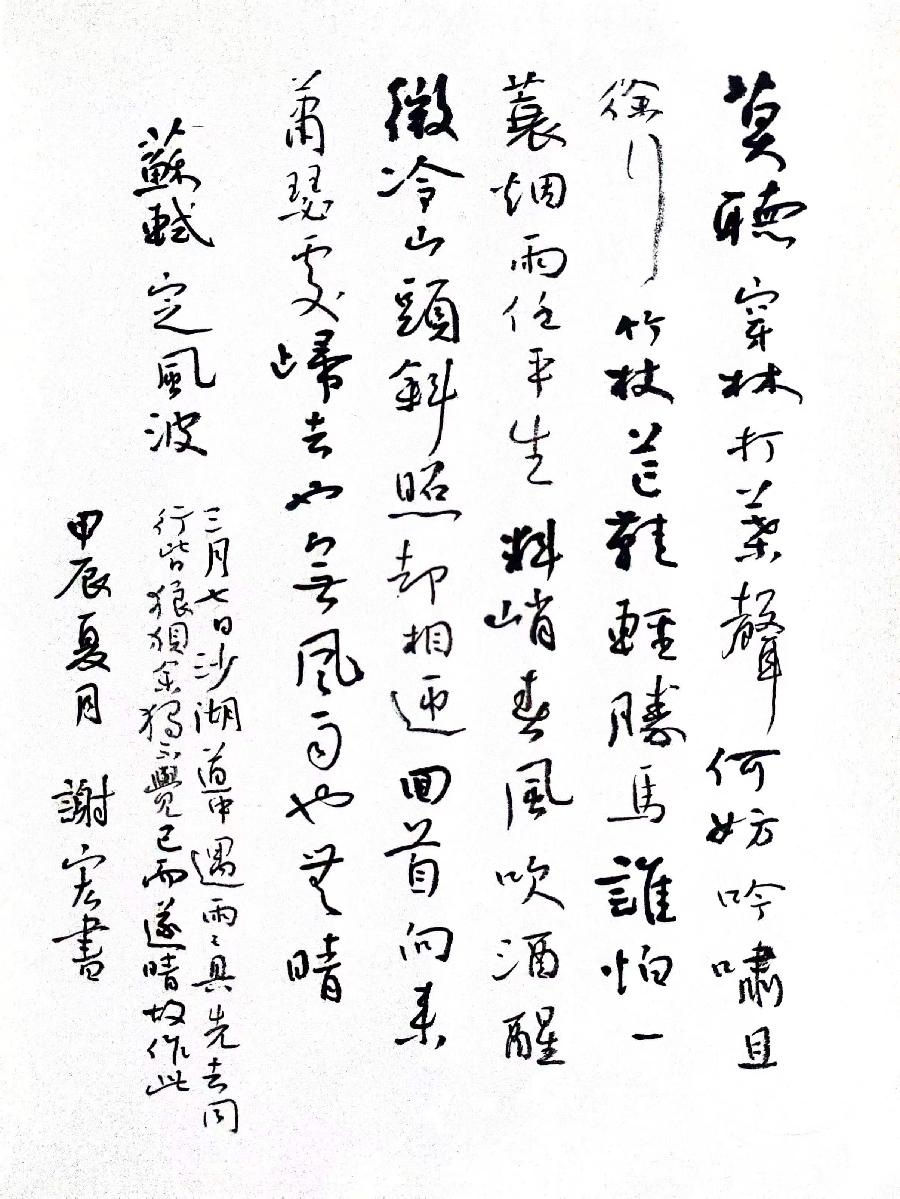 莫聽穿林打葉聲何妨吟嘯且
徐行竹杖芒鞋輕勝馬誰怕一
蓑烟雨任平生料峭春風吹酒醒
微冷山頭斜照却相迎回首向来
蕭瑟處歸去也無風雨也無晴
蘇軾定風波
三月七日沙湖道中遇雨雨具先去同
行皆狼狽余獨不覺已而遂晴故作此
甲辰夏月 謝宏書